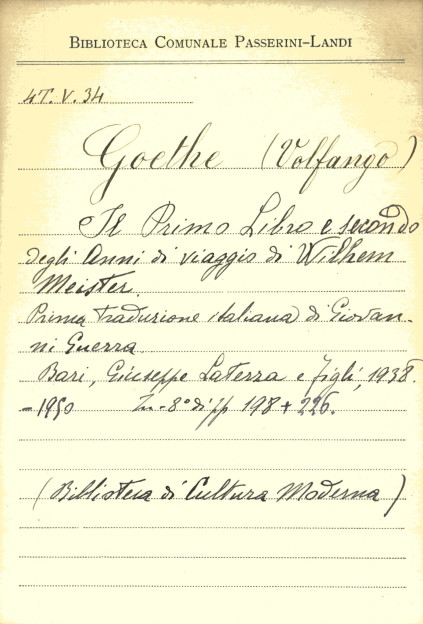 BIBLIOTECA COMUNALE PASSERINI-LANDI
4T. V. 34
Goethe (Volfango)
Il Primo Libro e secondo
degli Anni di viaggio di Wilhem
Meister.
Prima traduzione italiana di Giovan-
ni Guerra
Bari, Giuseppe Laterza e figli, 1938.
-1950 In-8° di pp 198 + 226.
(Biblioteca di Cultura Moderna)